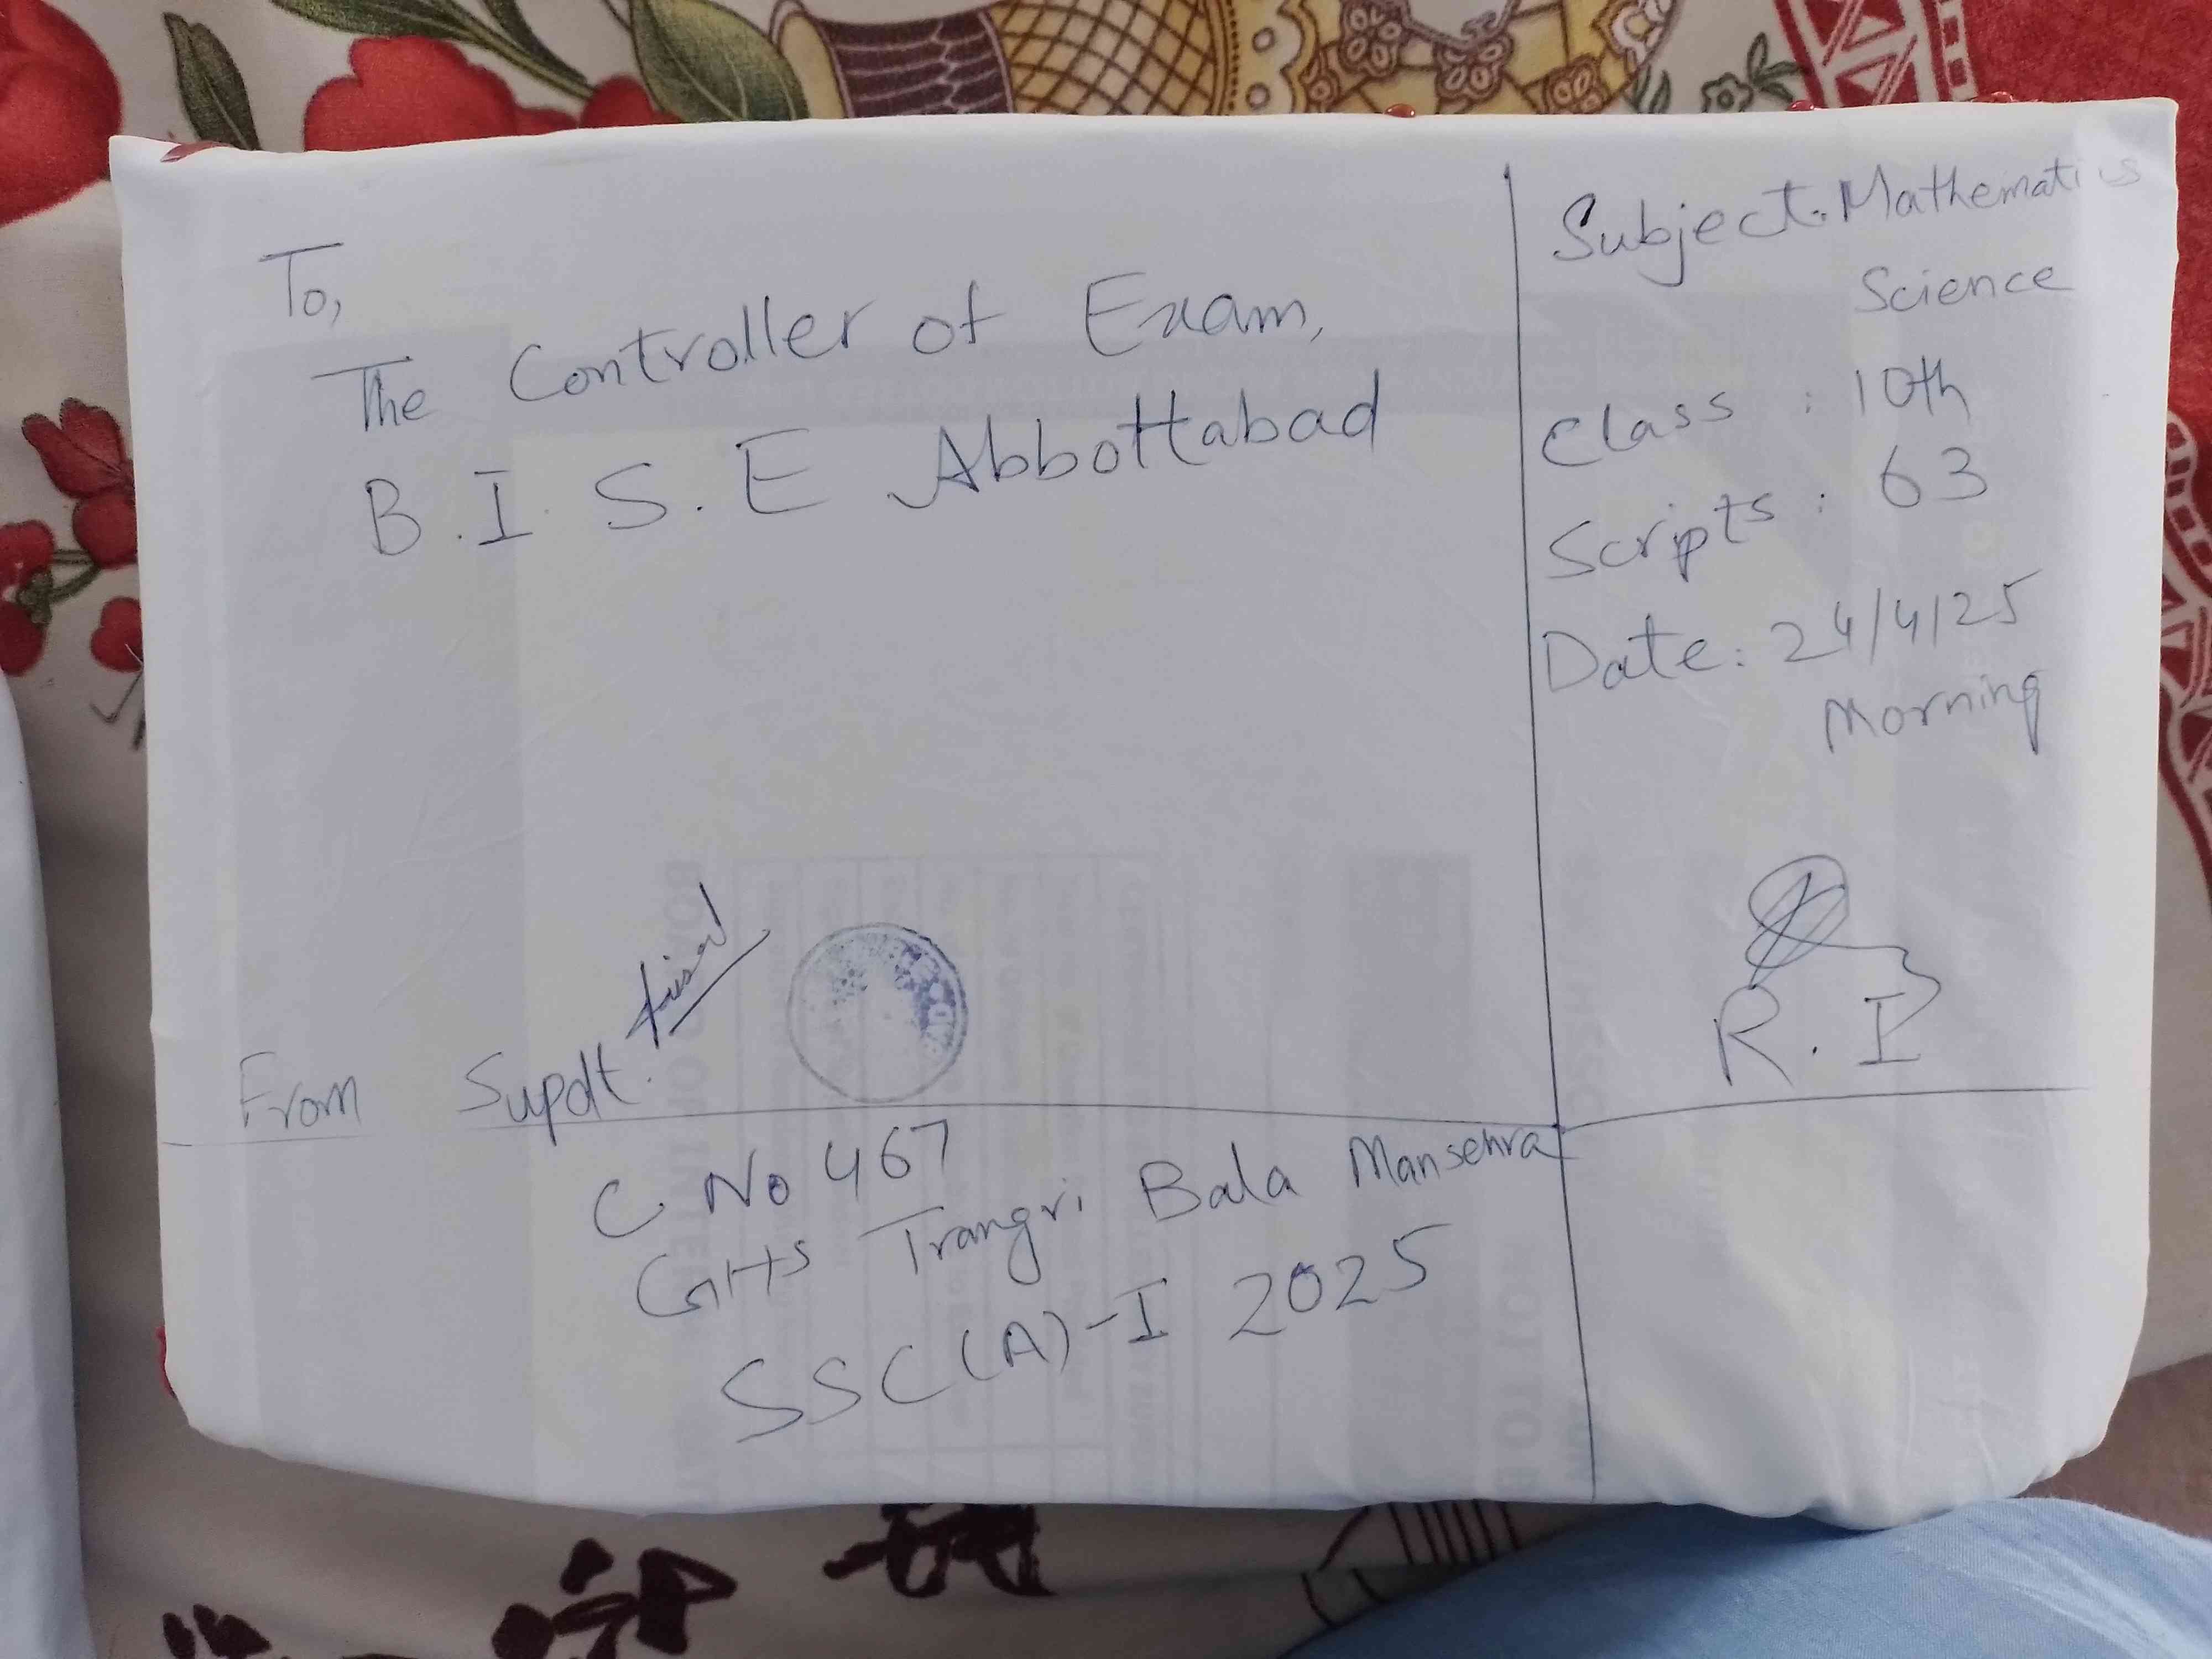 To,
The Controller of Exam,
B.I.S.E Abbottabad
Subject: Mathematics
Science
Class : 10th
Scripts : 63
Date: 24/4/25
Morning
R.I
From Supdt.
C No 467
GHS Trangri Bala Mansehra
SSC(A)-I 2025